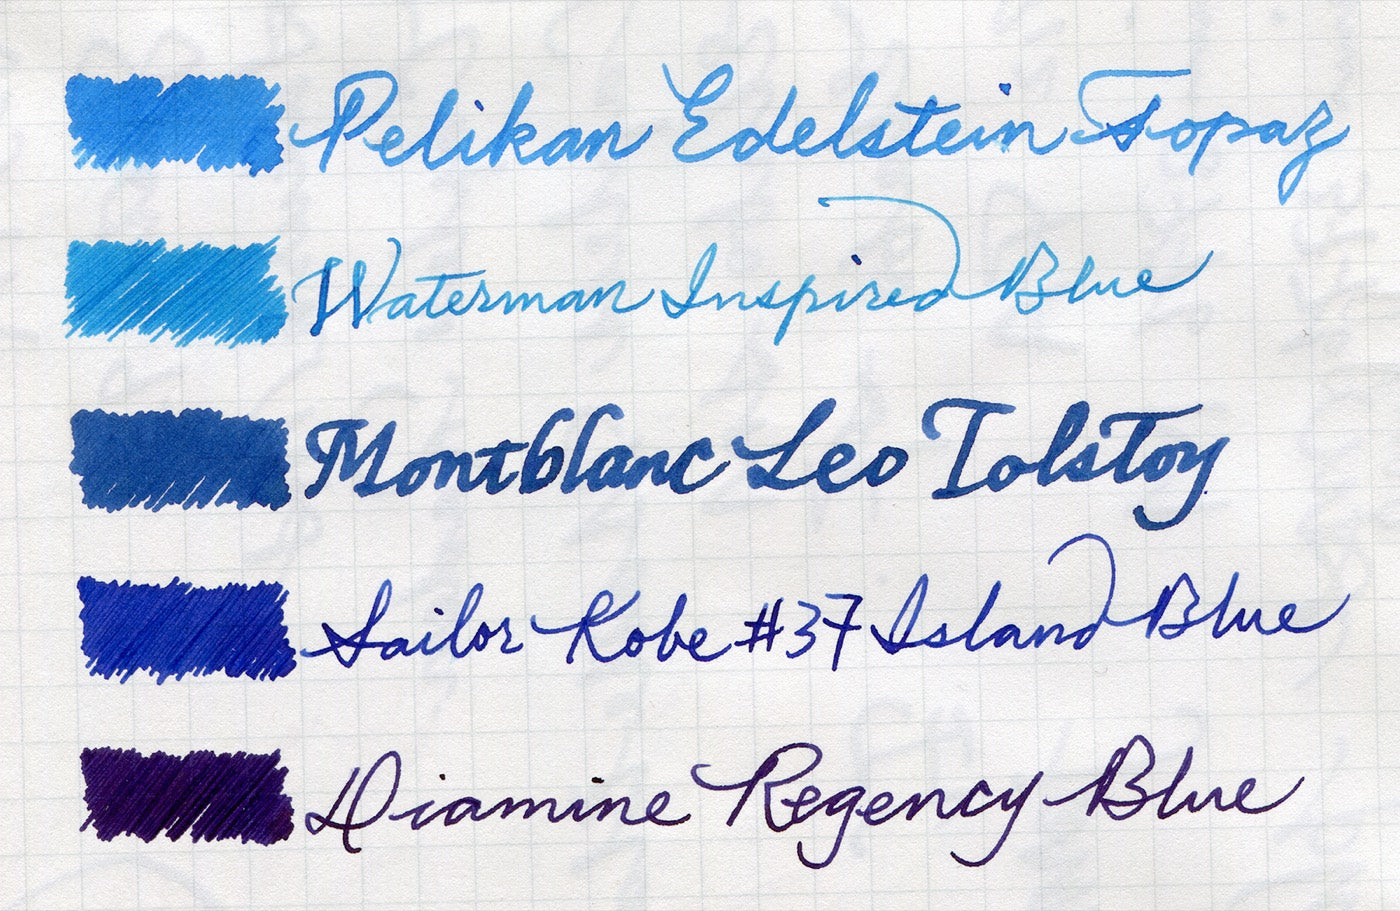 Pelikan Edelstein Topaz
Waterman Inspired Blue
Montblanc Leo Tolstoy
Sailor Kobe #37 Island Blue
Diamine Regency Blue